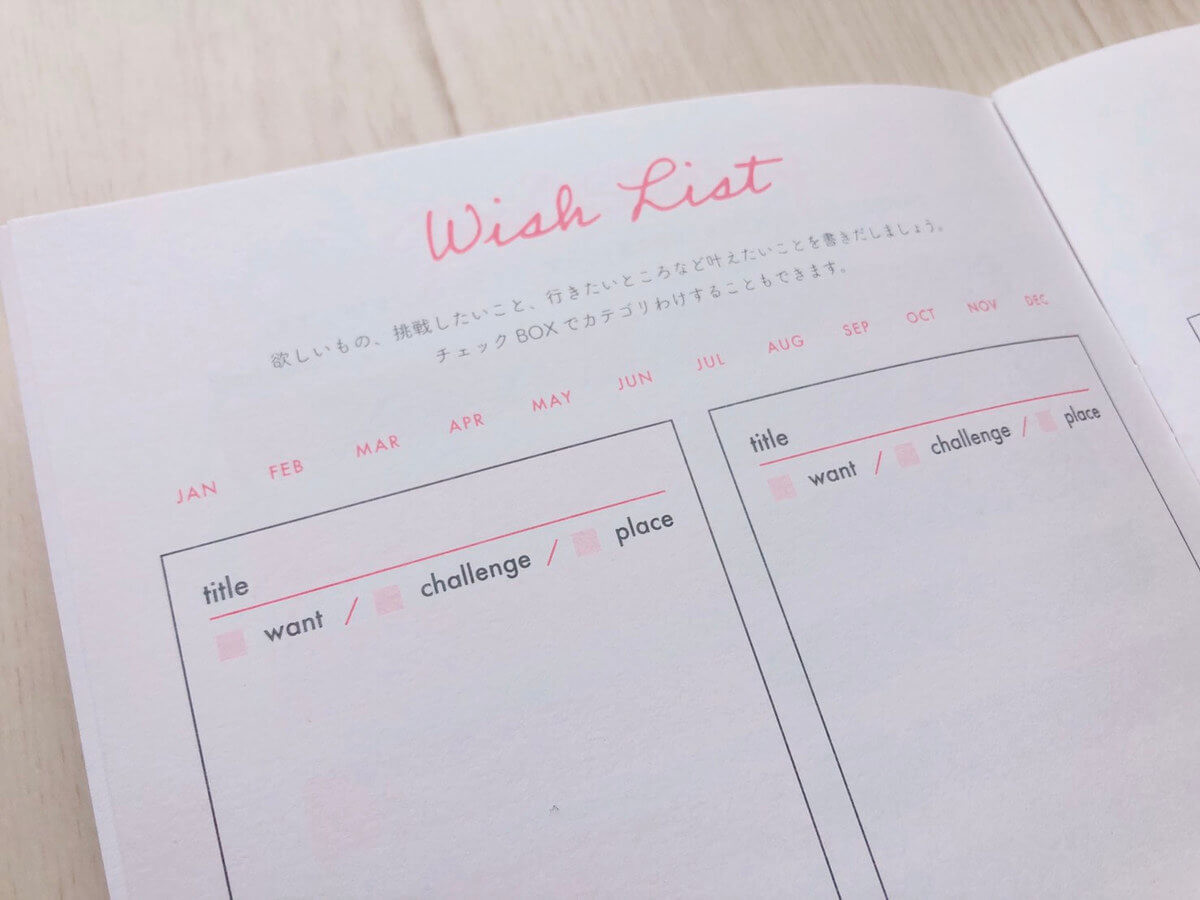 Wish List
欲しいもの、挑戦したいこと、行きたいところなど叶えたいことを書きだしましょう。
チェック BOX でカテゴリわけすることもできます。
JAN FEB MAR APR MAY JUN JUL AUG SEP OCT NOV DEC
title
want / challenge / place
title
want / challenge / place